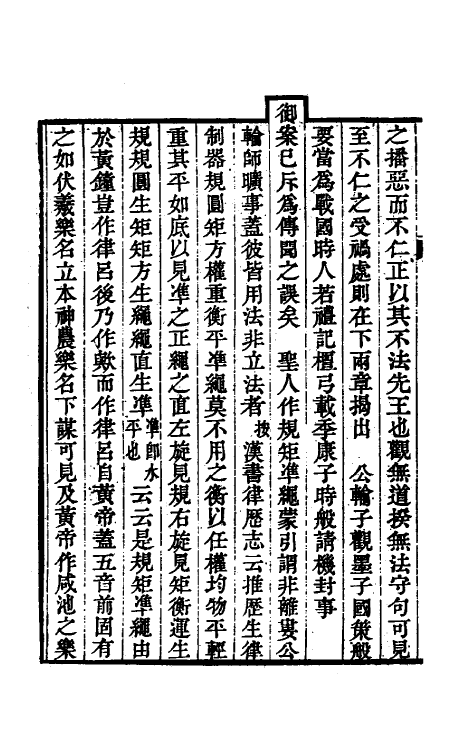 之播惡而不仁正以其不法先王也觀無道揆無法守句可見
至不仁之受禍處則在下兩章揭出　公輸子觀墨子國策般
要當爲戰國時人若禮記檀弓載季康子時般請機封事
御案已斥爲傳聞之誤矣　聖人作規矩準繩蒙引謂非離婁公
輸師曠事蓋彼皆用法非立法者按漢書律歷志云推歷生律
制器規圓矩方權重衡平準繩莫不用之衡以任權均物平輕
重其平如底以見準之正繩之直左旋見規右旋見矩衡運生
規規圓生矩矩方生繩繩直生準準卽水平也云云是規矩準繩由
於黃鐘豈作律呂後乃作歟而作律呂自黃帝蓋五音前固有
之如伏羲樂名立本神農樂名下謀可見及黃帝作咸池之樂